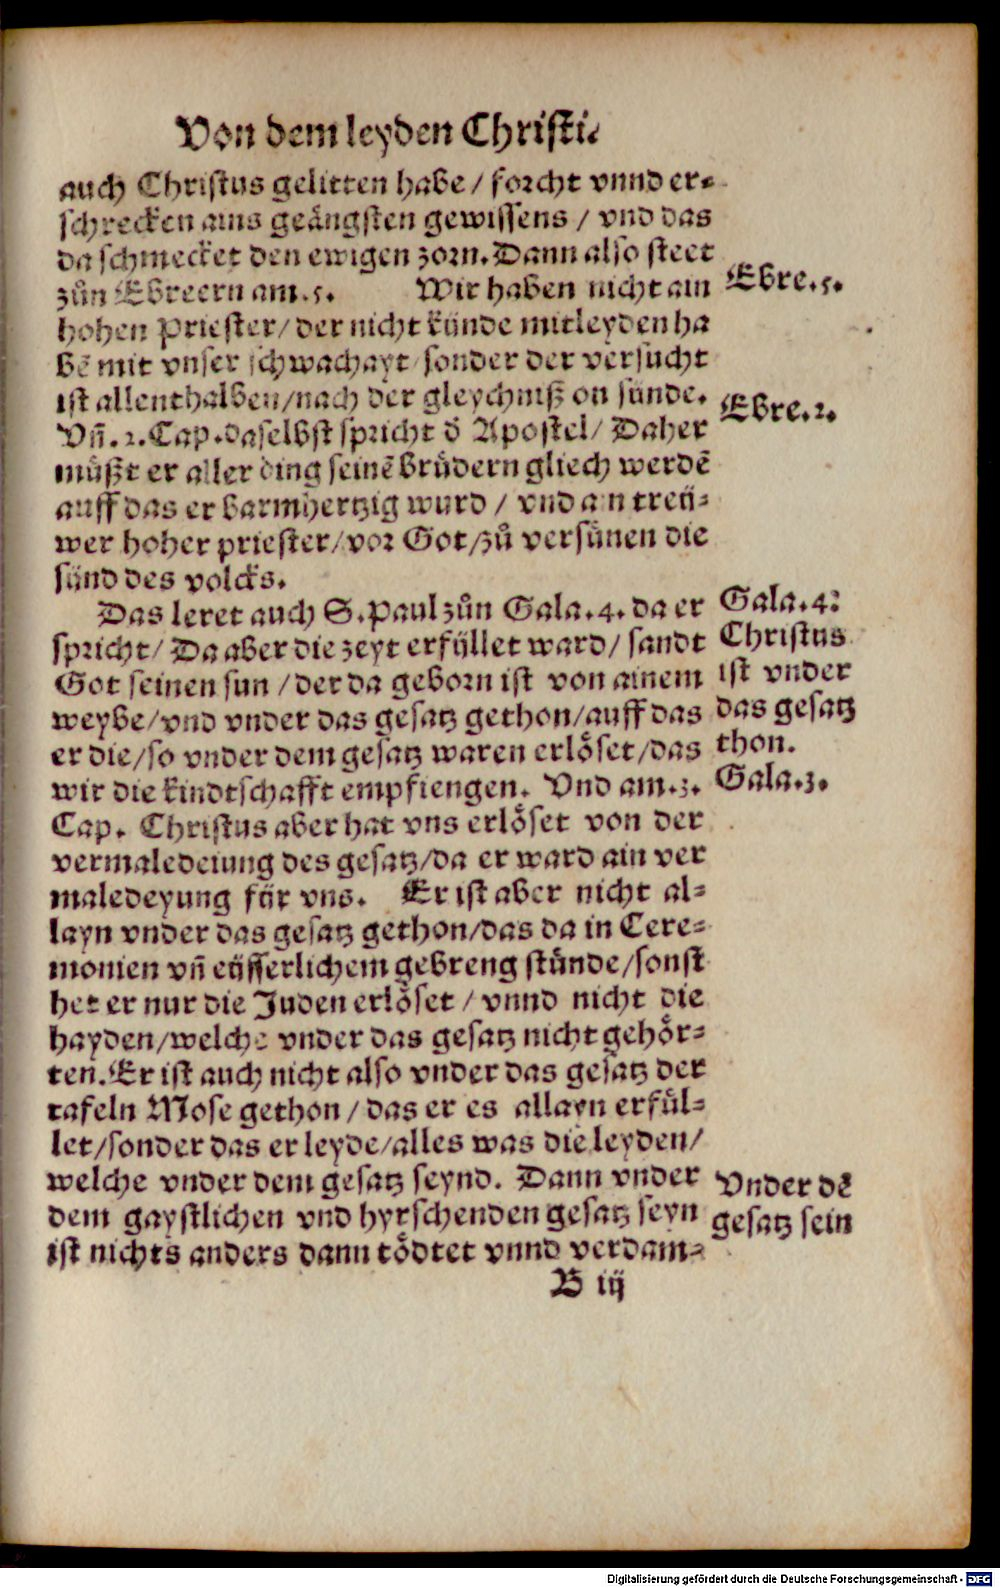 Von dem leyden Christi.
auch Christus gelitten habe / forcht vnnd er-
schrecken ains geängsten gewissens / vnd das
da schmecket den ewigen zorn. Dann also steet
zůn Ebreern am .5. Wir haben nicht ain
Ebre. 5.
hohen Priester / der nicht künde mitleyden ha
bẽ mit vnser schwachayt / sonder der versucht
ist allenthalben / nach der gleychniß on sünde.
Ebre. 2.
Vñ .2. Cap. daselbst spricht ð Apostel / Daher
müßt er aller ding seinẽ brüdern gliech werdẽ
auff das er barmhertzig wurd / vnd ain treü-
wer hoher priester / vor Got / zů versünen die
sünd des volcks.
Das leret auch S. Paul zůn Gala. 4. da er
spricht / Da aber die zeyt erfüllet ward / sandt
Got seinen sun / der da geborn ist von ainem
weybe / vnd vnder das gesatz gethon / auff das
er die / so vnder dem gesatz waren erlöset / das
wir die kindtschafft empfiengen. Vnd am .3.
Gala. 4:
Christus
ist vnder
das gesatz
thon.
Gala. 3.
Cap. Christus aber hat vns erlöset von der
vermaledeiung des gesatz / da er ward ain ver
maledeyung für vns. Er ist aber nicht al-
layn vnder das gesatz gethon / das da in Cere-
monien vñ eüsserlichem gebreng stünde / sonst
het er nur die Juden erlöset / vnnd nicht die
hayden / welche vnder das gesatz nicht gehör-
ten. Er ist auch nicht also vnder das gesatz der
tafeln Mose gethon / das er es allayn erfül-
let / sonder das er leyde / alles was die leyden /
welche vnder dem gesatz seynd. Dann vnder
dem gaystlichen vnd hyrschenden gesatz seyn
ist nichts anders dann tödtet vnnd verdam-
Vnder dẽ
gesatz sein
B iij
Digitalisierung gefördert durch die Deutsche Forschungsgemeinschaft - DFG